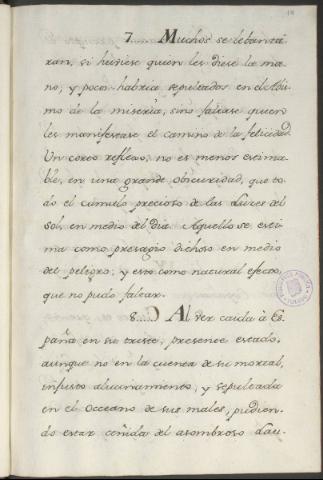 7. Muchos se lebanta
ran, si huviese quien les diese la ma
no, y pocos habria sepultados en el Abis
mo de la miseria, sino faltase quien
les manifestase el camino de la felicidad.
Un corto reflexo, no es menos estima
ble, en una grande obscuridad, que to
do el cúmulo precioso de las Luzes del
Sol en medio del Dia. Aquello se esti
ma como presagio dichoso en medio
del peligro, y esto como natural efecto,
que no pudo faltar.
8..... Al ver caida à Es
paña en su triste, presente estado,
aunque no en la cuenta de su mortal,
injusto alucinamiento, y sepultada
en el Occeano de sus males, pudien-
do estar ceñida del asombroso Lau-